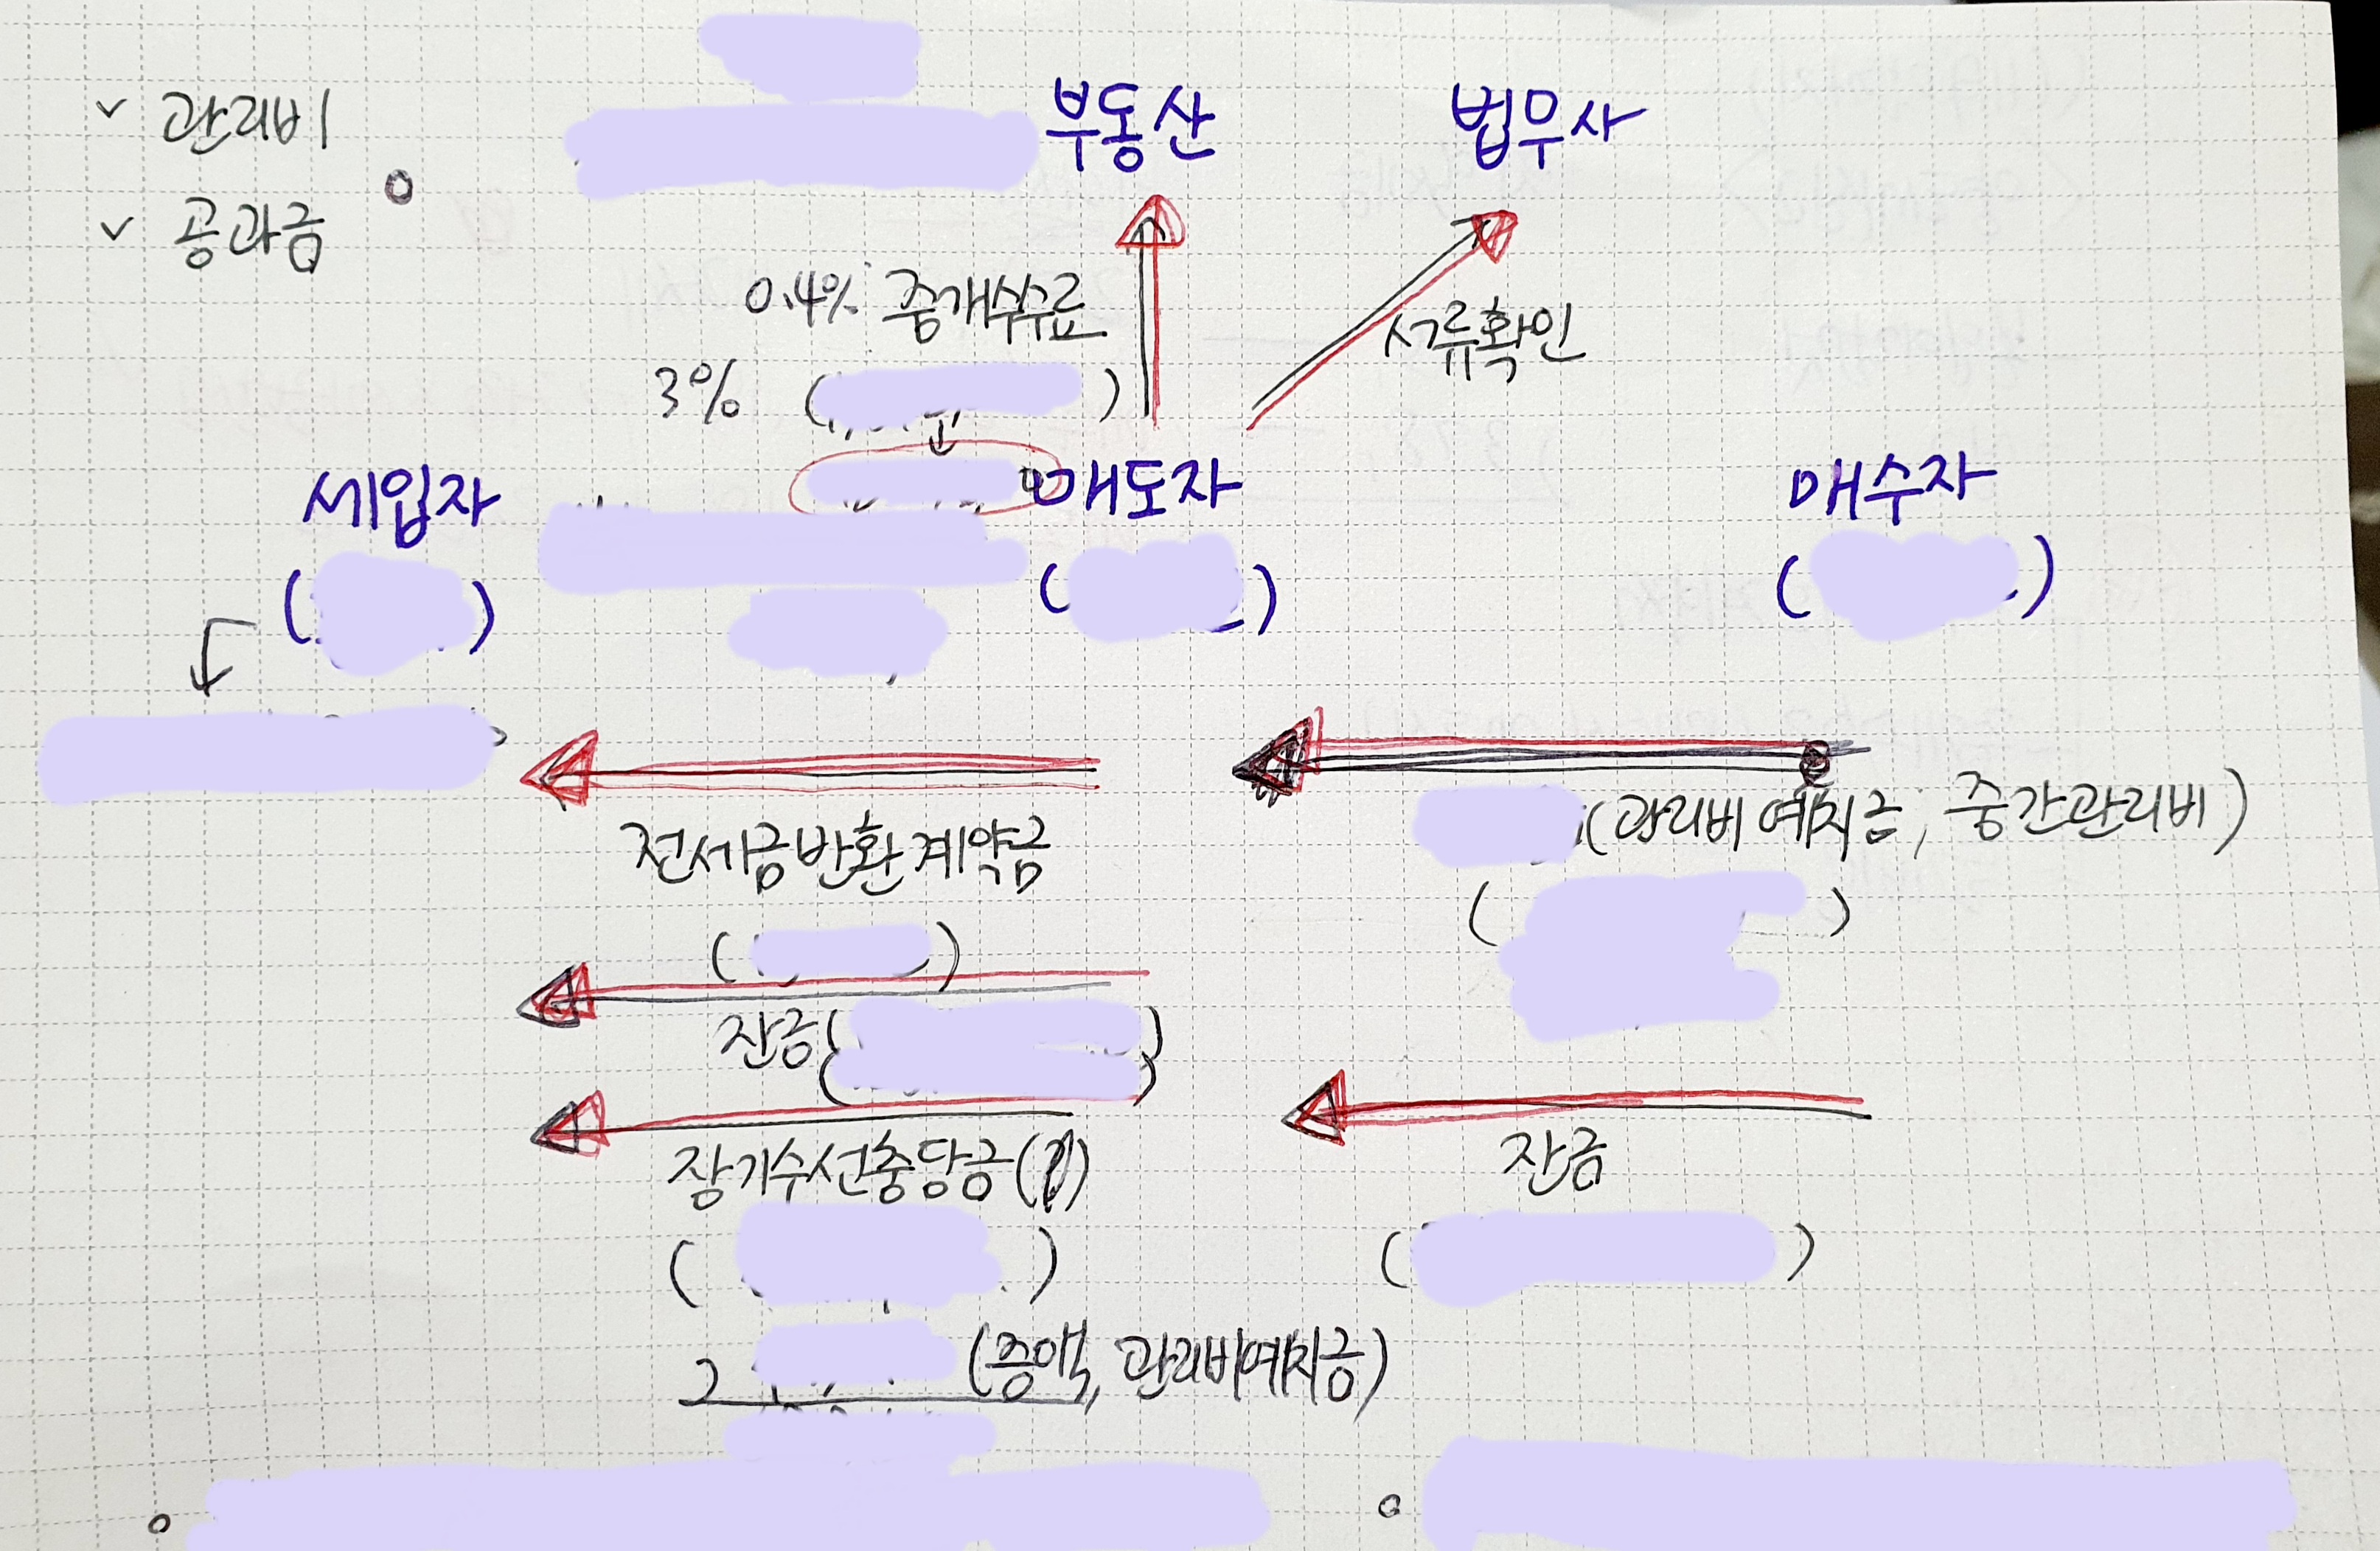 ✓ 관리비
✓ 공과금
부동산
법무사
0.4% 중개수수료
3% ( )
서류확인
세입자
( )
매도자
( )
매수자
( )
전세금반환계약금
( )
(관리비예치금, 중간관리비)
( )
잔금( )
( )
장기수선충당금(?)
( )
잔금
( )
2 (증액, 관리비예치금)